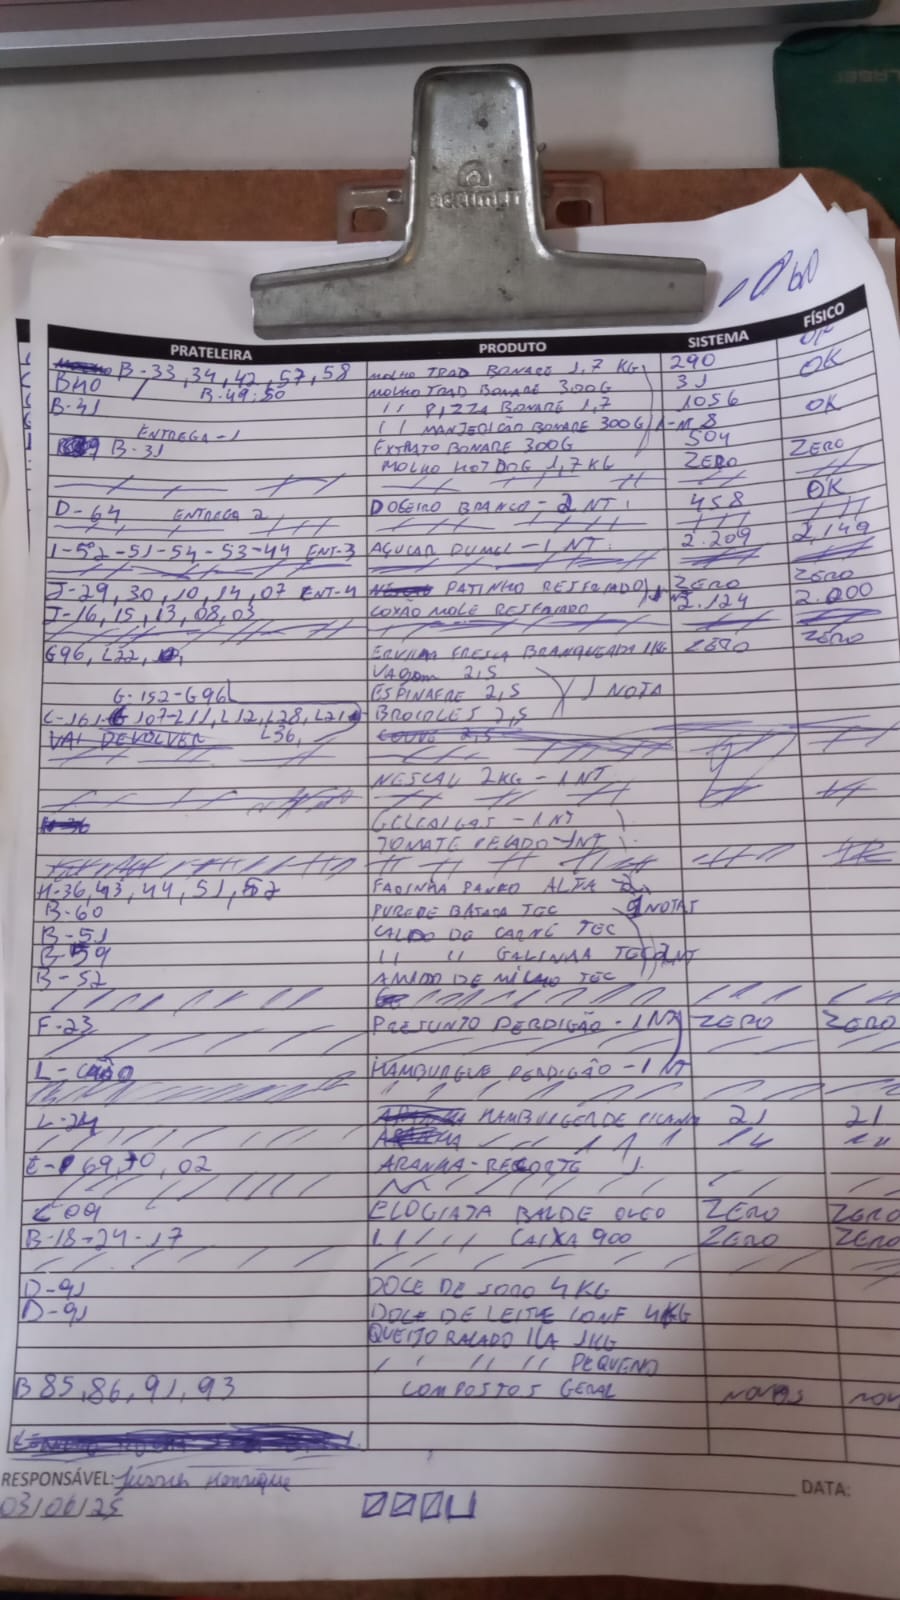 PRATELEIRA PRODUTO SISTEMA FÍSICO
B-33,34,42,57,58 MOLHO TRAD BONARE 1,7 KG 290 OK
B40 B-49-50 MOLHO TRAD BONARE 300G 31 OK
B-31 11 PIZZA BONARE 1,7 1056
ENTREGA-1 11 MANJERICÃO BONARE 300G 8 OK
B-31 EXTRATO BONARE 300G 504
MOLHO HOT DOG 1,7 KG ZERO ZERO
D-64 ENTREGA 2 DOCEIRO BRANCO-2 NT 458 OK
1-52-51-54-53-44 ENT-3 AÇUCAR DUMEL-1 NT 2.209 2,149
J-29,30,10,14,07 ENT-4 PATINHO RESFRIADO ZERO ZERO
J-16,15,13,08,03 COXÃO MOLE RESFRIADO 2.124 2.000
G96, L22, ERVILHA FRESCA BRANQUEADA 1KG ZERO ZERO
VAGEM 2,5
G-152-G96 ESPINAFRE 2,5 1 NOTA
107-L11, L12, L28, L21 BROCOLES 2,5
VAI DEVOLVER L36, COUVE 2,5
NESCAU 2KG-1 NT
-1 NT
TOMATE PELADO-1NT
H-36,43,44,51,52 FARINHA PANKO ALFA
B-60 PURE DE BATATA TEC NOTAS
B-51 CALDO DE CARNE TEC
B-59 11 11 GALINHA TEC 2NT
B-52 AMIDO DE MILHO TEC
F-23 PRESUNTO PERDIGÃO-1 NT ZERO ZERO
L- HAMBURGUE PERDIGÃO-1 NT
L-24 HAMBURGER DE PICANHA 21 21
69,70,02 ARANHA-RECORTE
C09 BALDE OLEO ZERO ZERO
B-18-24-17 11 11 CAIXA 900 ZERO ZERO
D-91 DOCE DE SORO 4KG
D-91 DOCE DE LEITE CONF 4KG
QUEIJO RALADO 1KG
11 11 PEQUENO
B85,86,91,93 COMPOSTOS GERAL NOVOS
RESPONSÁVEL: Henrique DATA:
03/06/25